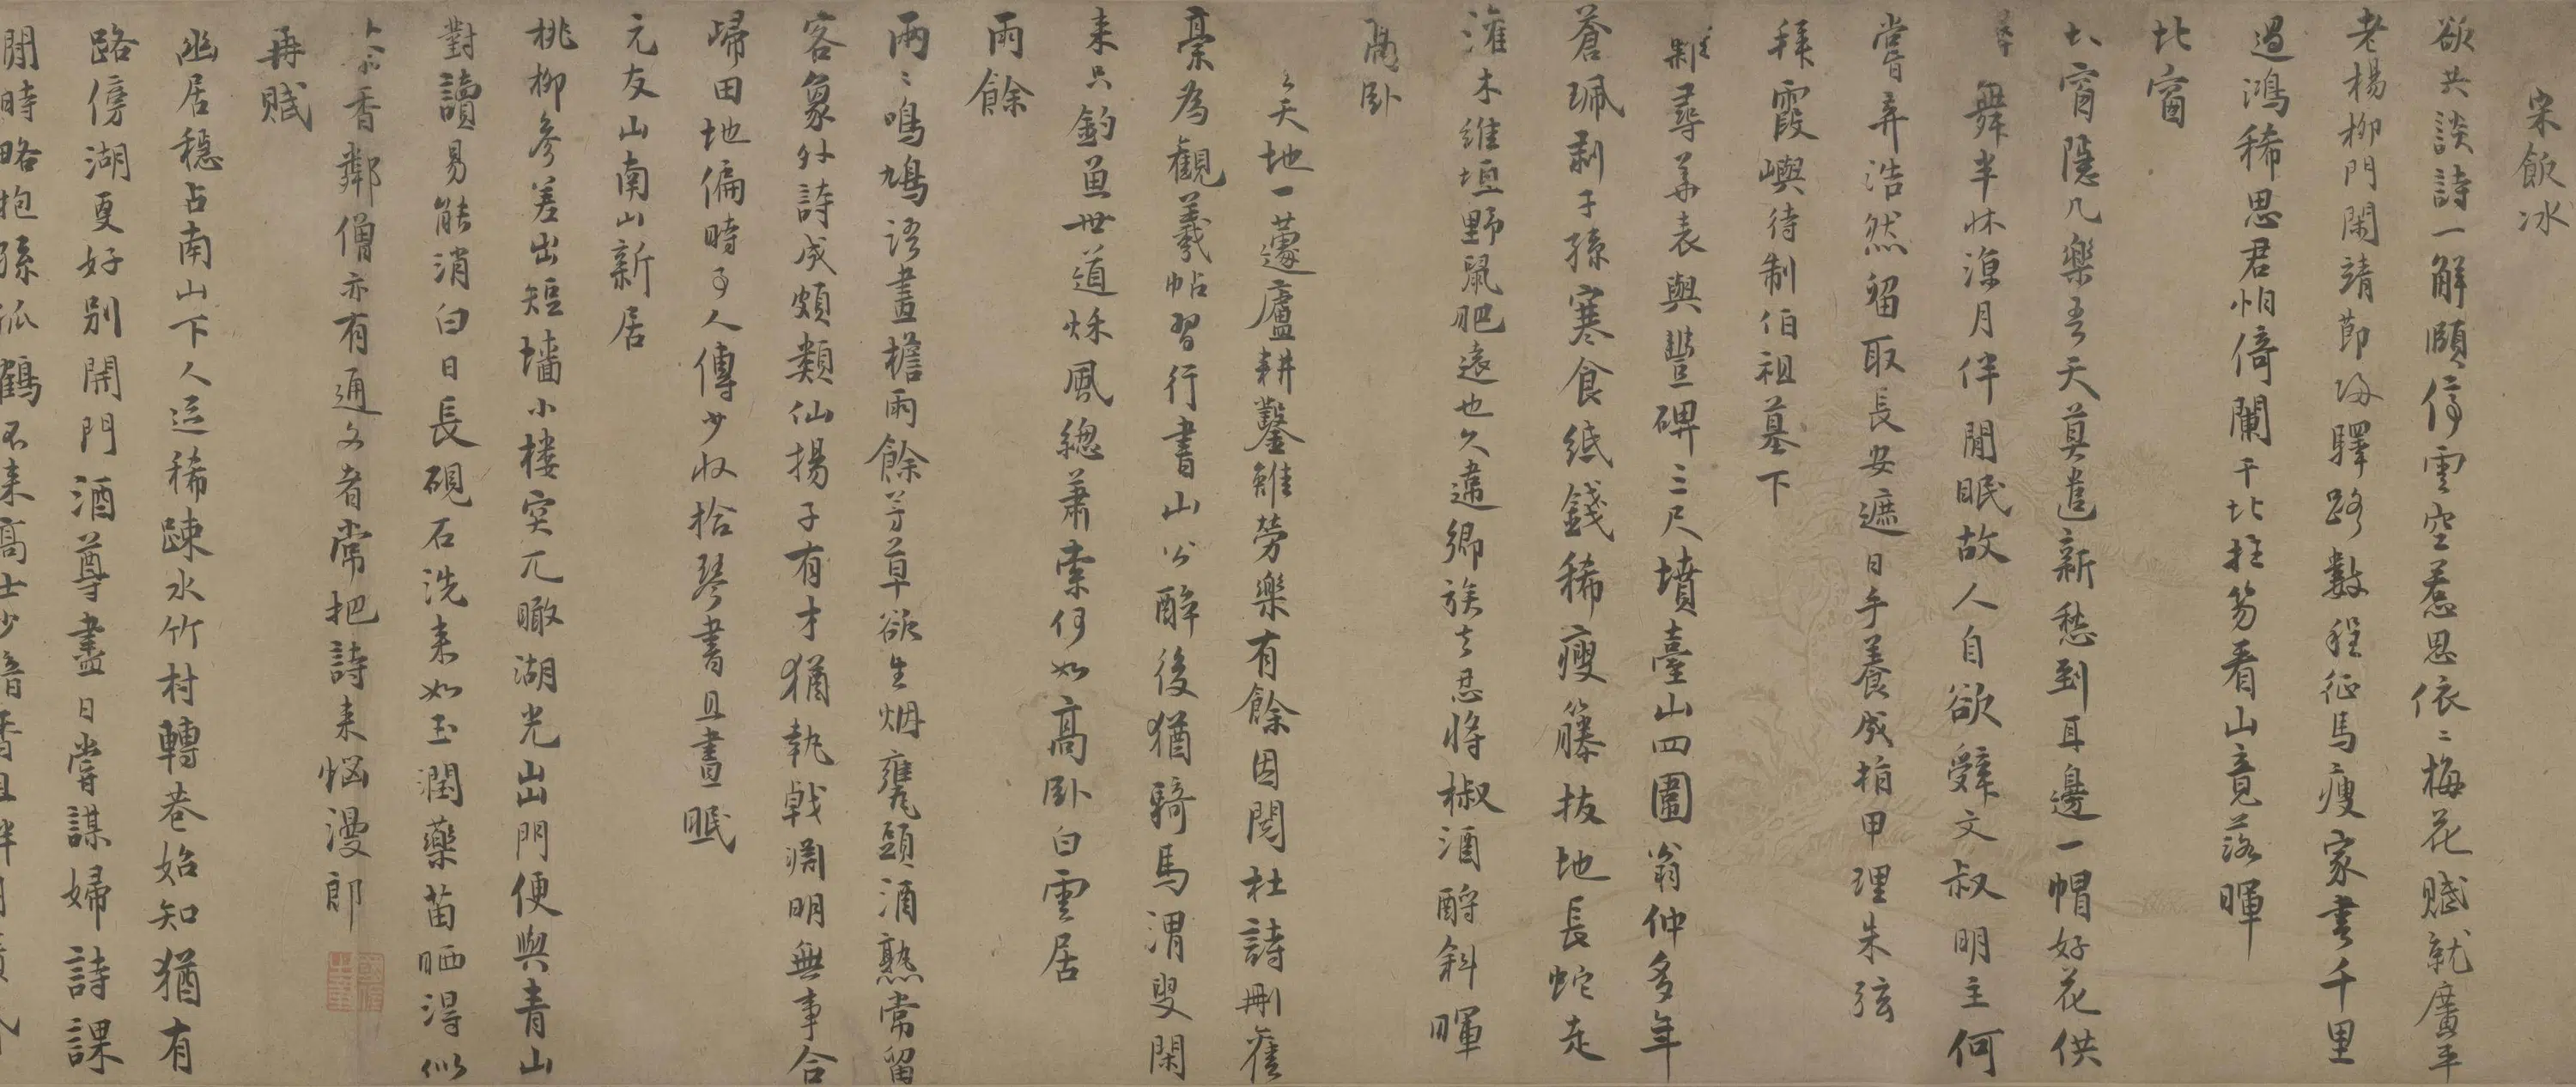 宋飲冰
欲共談詩一解頤停雲空惹思依〻梅花賦就廣平
老楊柳門閑靖節歸驛路數程征馬瘦家書千里
過鴻稀思君怕倚闌干北拄笏看山竟落暉
北窗
北窗隱几樂吾天莫遣新愁到耳邊一帽好花供
舞半牀涼月伴閒眠故人自欲辤文叔明主何
嘗弃浩然留取長安遮日手養成指甲理朱弦
拜霞嶼待制伯祖墓下
難尋華表與豐碑三尺墳臺山四圍翁仲多年
蒼珮剥子孫寒食紙錢稀瘦籐拔地長蛇走
灌木維垣野鼠肥遠也久違鄉族去忍將椒酒酹斜暉
高卧
天地一蘧廬耕鑿雖勞樂有餘因閱杜詩刪舊
稾為觀羲帖習行書山公醉後猶騎馬渭叟閑
来只釣魚世道秌風總蕭索何如高卧白雲居
雨餘
兩〻鳴鳩語畫檐雨餘芳草欲生烟甕頭酒熟常留
客象外詩成頗類仙揚子有才猶執戟淵明無事合
歸田地偏時子人傳少收拾琴書且晝眠
元友山南山新居
桃柳參差出短墻小樓突兀瞰湖光出門便與青山
對讀易能消白日長硯石洗来如玉潤藥苗晒得似
香鄰僧亦有通文者常把詩来惱漫郎
再賦
幽居穩占南山下人迹稀踈水竹村轉巷始知猶有
路傍湖更好別開門酒尊盡日嘗謀婦詩課
閒時略抱孫孤鶴不来高士少